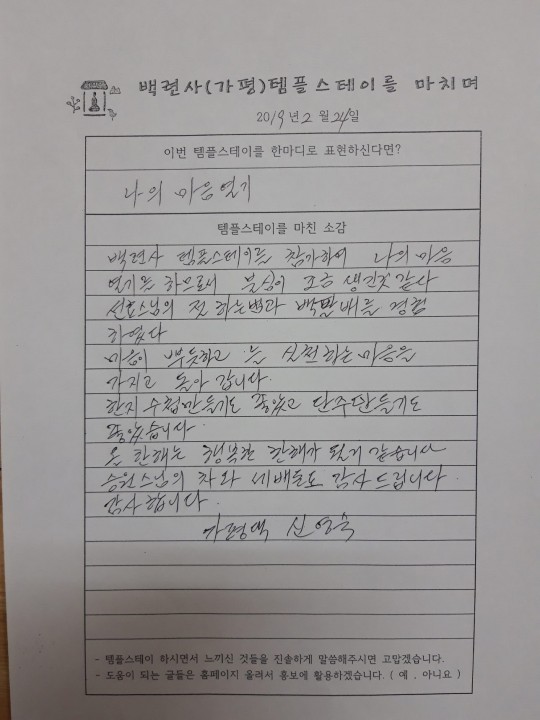 백련사(가평)템플스테이를 마치며
2019년 2월 24일
이번 템플스테이를 한마디로 표현하신다면?
나의 마음열기
템플스테이를 마친 소감
백련사 템플스테이를 참가하여 나의 마음
열기를 하므로서 불심이 조금 생긴것 같다
선효스님의 절 하는법과 백팔배를 경험
하였다
마음이 뿌듯하고 늘 실천하는마음을
가지고 돌아 갑니다.
한지 수첩만들기도 좋았고 단주만들기도
좋았습니다.
올 한해는 행복한 한해가 될거 같습니다
승원스님의 차와 세배돈도 감사드립니다.
감사합니다.
가평댁 신영숙
- 템플스테이 하시면서 느끼신 것들을 진솔하게 말씀해주시면 고맙겠습니다.
- 도움이 되는 글들은 홈페이지 올려서 홍보에 활용하겠습니다. ( 예 , 아니요 )